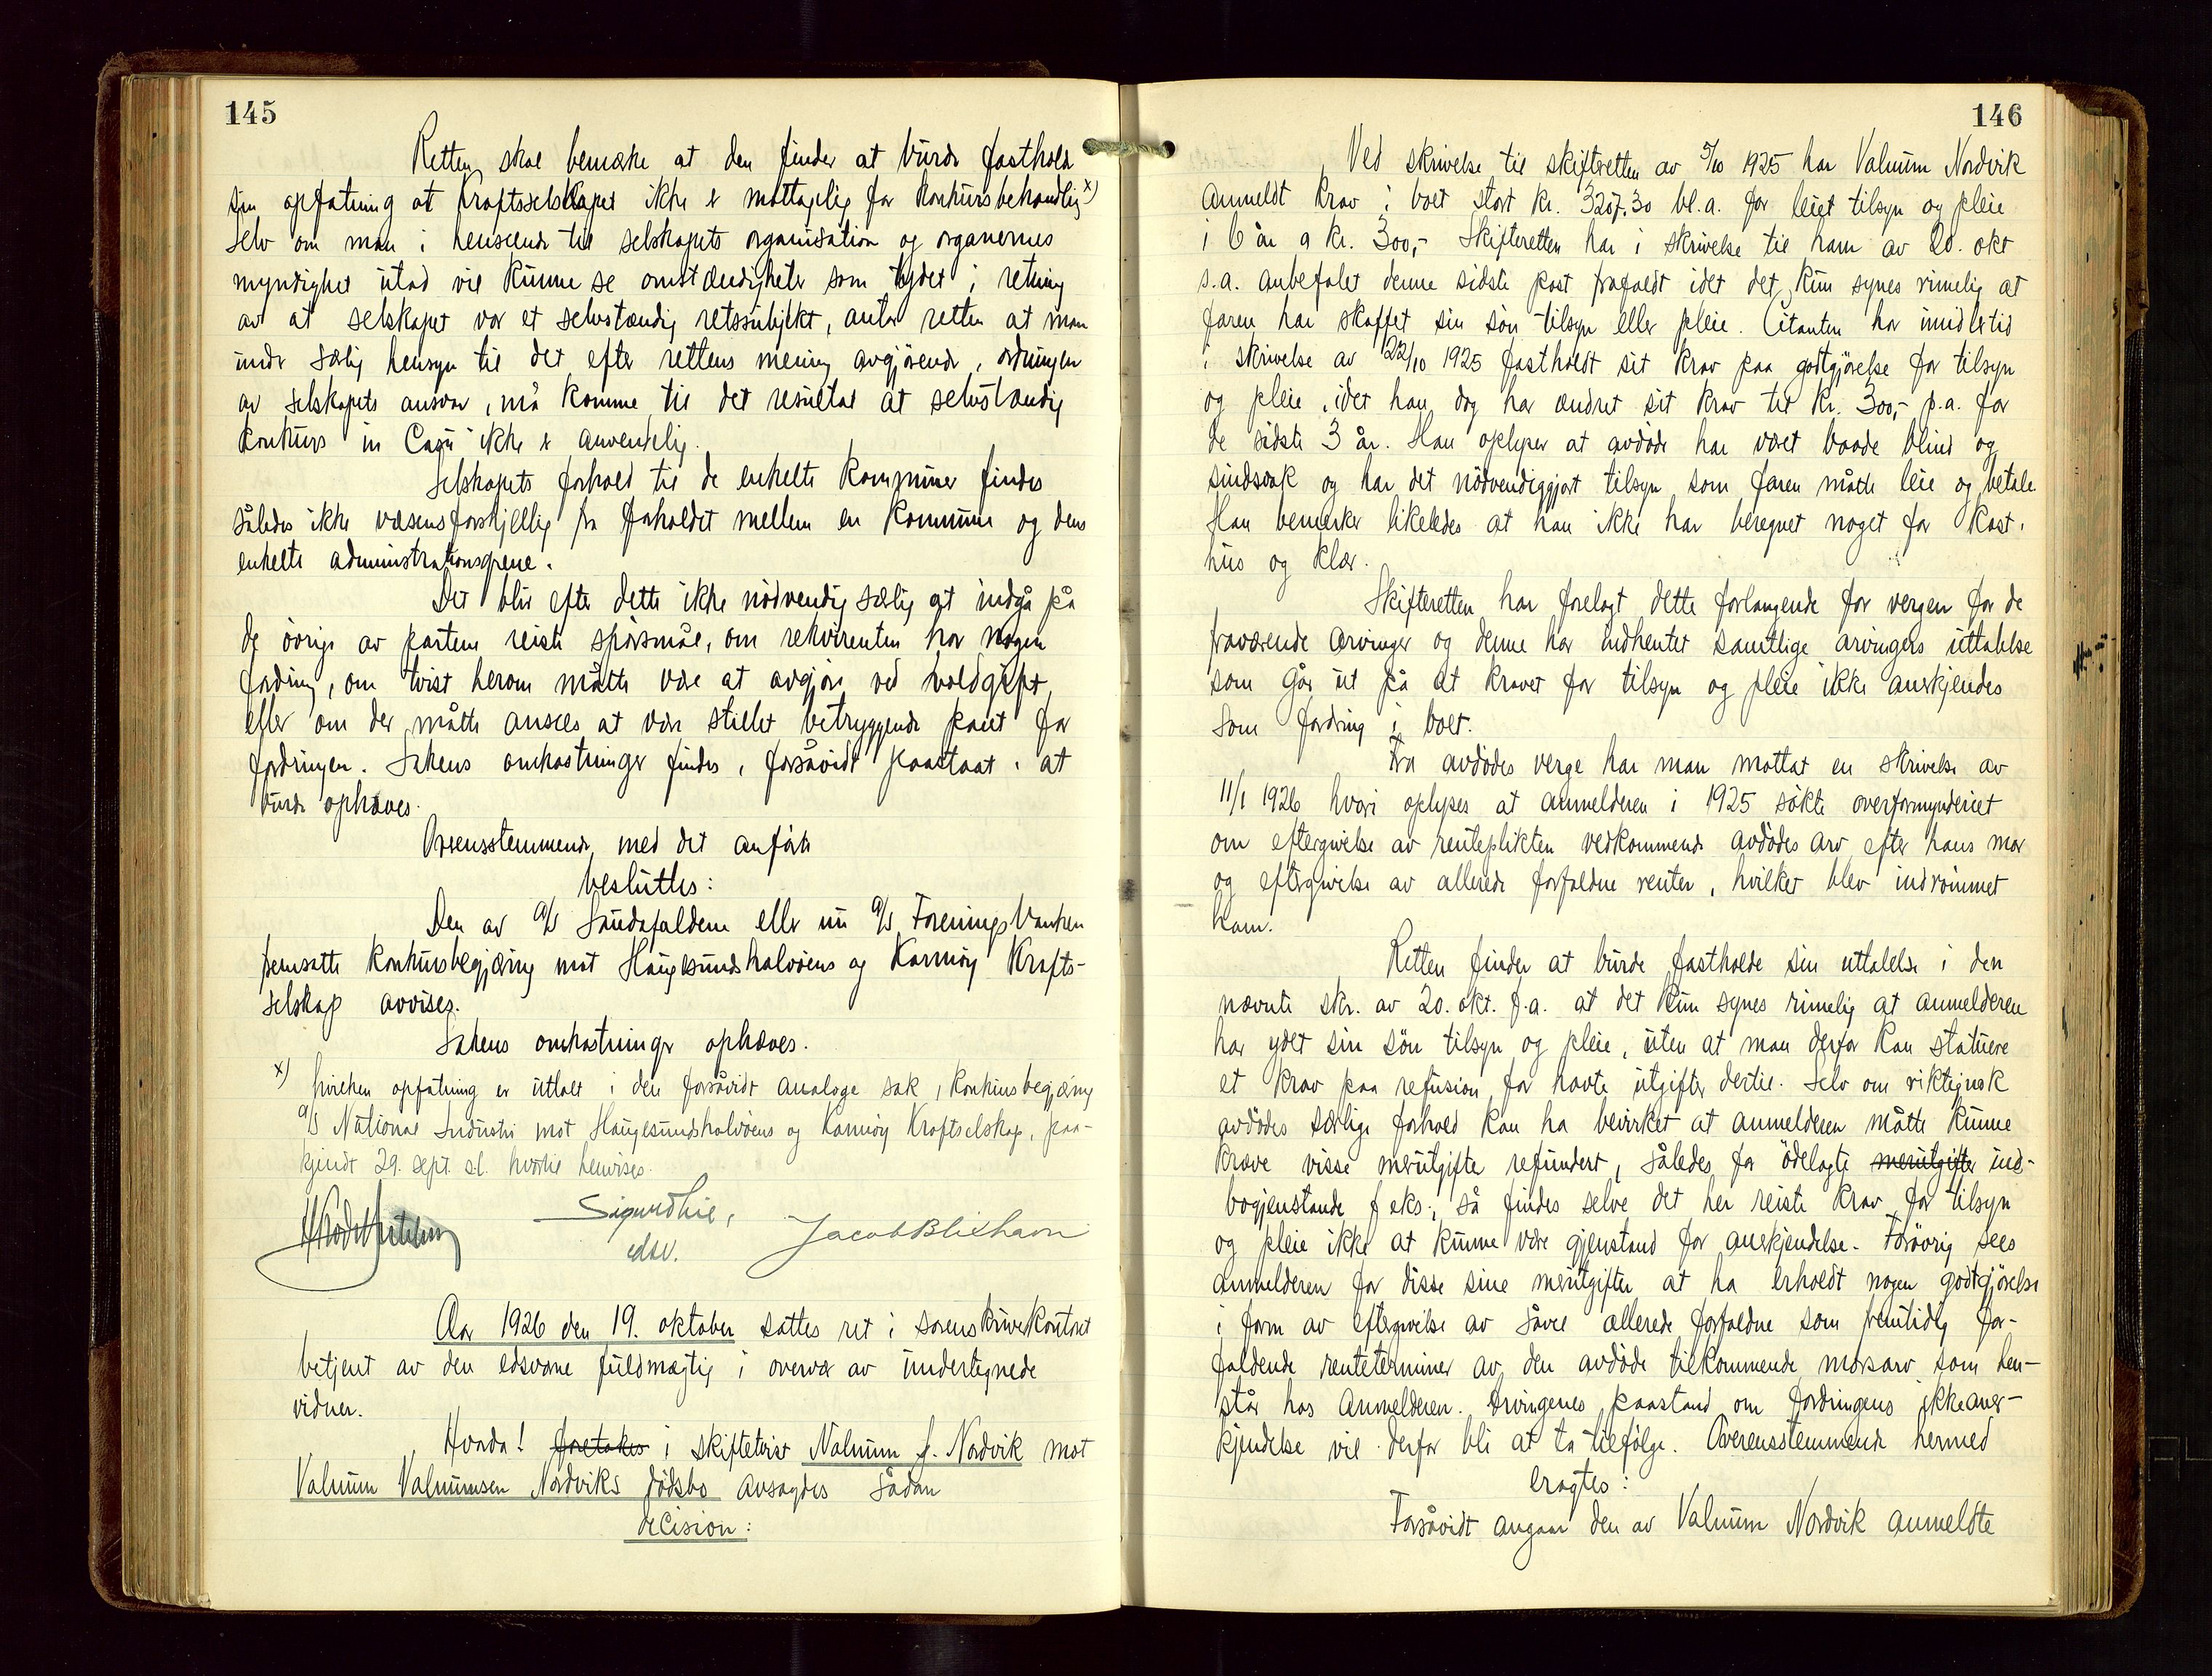 145
Retten skal bemærke at den finder at burde fastholde
sin opfatning at Kraftsselskapet ikke er mottagelig for konkursbehandlig x)
Selv om man i henseende til selskapets organisation og organernes
myndighet utad vil kunne se omstændigheter som tyder i retning
av at selskapet var et selvstændig retssubjekt, antar retten at man
under særlig hensyn til det efter rettens mening avgjörende, ordningen
av selskapets ansvar, må komme til det resultat at selvstændig
konkurs in Casu ikke er anvendelig.
Selskapets forhold til de enkelte kommuner findes
således ikke væsensforskjellig fra forholdet mellem en kommune og dens
enkelte administrationsgrene.
Det blir efter dette ikke nödvendig særlig at indgå på
de övrige av partene reiste spörsmål, om rekvirenten har nogen
fordring, om tvist herom måtte være at avgjöre ved voldgift,
eller om der måtte ansees at være stillet betryggende pant for
fordringen. Sakens omkostninger findes, forsåvidt paastaat, at
burde ophæves.
Overensstemmende med det anförte
besluttes:
Den av A/S Saudafaldene eller nu A/S Foreningsbanken
fremsatte konkursbegjæring mot Haugesundshalvöens og Karmöy Krafts-
selskap avvises.
Sakens omkostninger ophæves.
x) hvilken opfatning er uttalt i den forsåvidt analoge sak, konkursbegjæring
A/S National Industri mot Haugesundshalvöens og Karmöy Kraftselskap, paa-
kjendt 29. sept. s.l. hvortil henvises.
Sigurd Lie, Jacob Blikhavn
edsv.
Aar 1926 den 19. oktober sattes ret i sorenskriverkontoret
betjent av den edsvorne fuldmægtig i overvær av undertegnede
vidner.
Hvorda! foretakes i skiftetvist Valnum J. Nordvik mot
Valnum Valnumsen Nordviks dödsbo avsagdes sådan
decision:
146
Ved skrivelse til skifteretten av 5/10 1925 har Valnum Nordvik
anmeldt krav i boet stort kr. 3207.30 bl.a. for leiet tilsyn og pleie
i 6 år a kr. 300,- Skifteretten har i skrivelse til ham av 20. okt
s.a. anbefalet denne sidste post frafaldt idet det kun synes rimelig at
faren har skaffet sin sön tilsyn eller pleie. Citanten har imidlertid
i skrivelse av 22/10 1925 fastholdt sit krav paa godtgjörelse for tilsyn
og pleie, idet han dog har ændret sit krav til kr. 300,- p.a. for
de sidste 3 år. Han oplyser at avdöde har været baade blind og
sindssvak og har det nödvendiggjort tilsyn som faren måtte leie og betale.
Han bemerker likeledes at han ikke har beregnet noget for kost,
hus og klær.
Skifteretten har forelagt dette forlangende for vergen for de
fraværende arvinger og denne har indhentet samtlige arvingers uttalelse
som går ut på at kravet for tilsyn og pleie ikke anerkjendes
som fordring i boet.
Fra avdödes verge har man mottat en skrivelse av
11/1 1926 hvori oplyses at anmelderen i 1925 sökte overformynderiet
om eftergivelse av renteplikten vedkommende avdödes arv efter hans mor
og eftergivelse av allerede forfaldne renter, hvilket blev indrömmet
ham.
Retten finder at burde fastholde sin uttalelse i den
nævnte skr. av 20. okt. f.a. at det kun synes rimelig at anmelderen
har ydet sin sön tilsyn og pleie, uten at man derfor kan statuere
et krav paa refusion for havte utgifter dertil. Selv om riktignok
avdödes særlige forhold kan ha bevirket at anmelderen måtte kunne
kræve visse merutgifter refundert, således for ödelagte merutgifter ind-
bogjenstande f eks., så findes selve det her reiste krav for tilsyn
og pleie ikke at kunne være gjenstand for anerkjendelse. Forövrig sees
anmelderen for disse sine merutgifter at ha erholdt nogen godtgjörelse
i form av eftergivelse av såvel allerede forfaldne som fremtidig for-
faldende renteterminer av den avdöde tilkommende morsarv som hen-
står hos anmelderen. Arvingenes paastand om fordringens ikkeaner-
kjendelse vil derfor bli at ta tilfölge. Overensstemmende hermed
eragtes:
Forsåvidt angaar den av Valnum Nordvik anmeldte